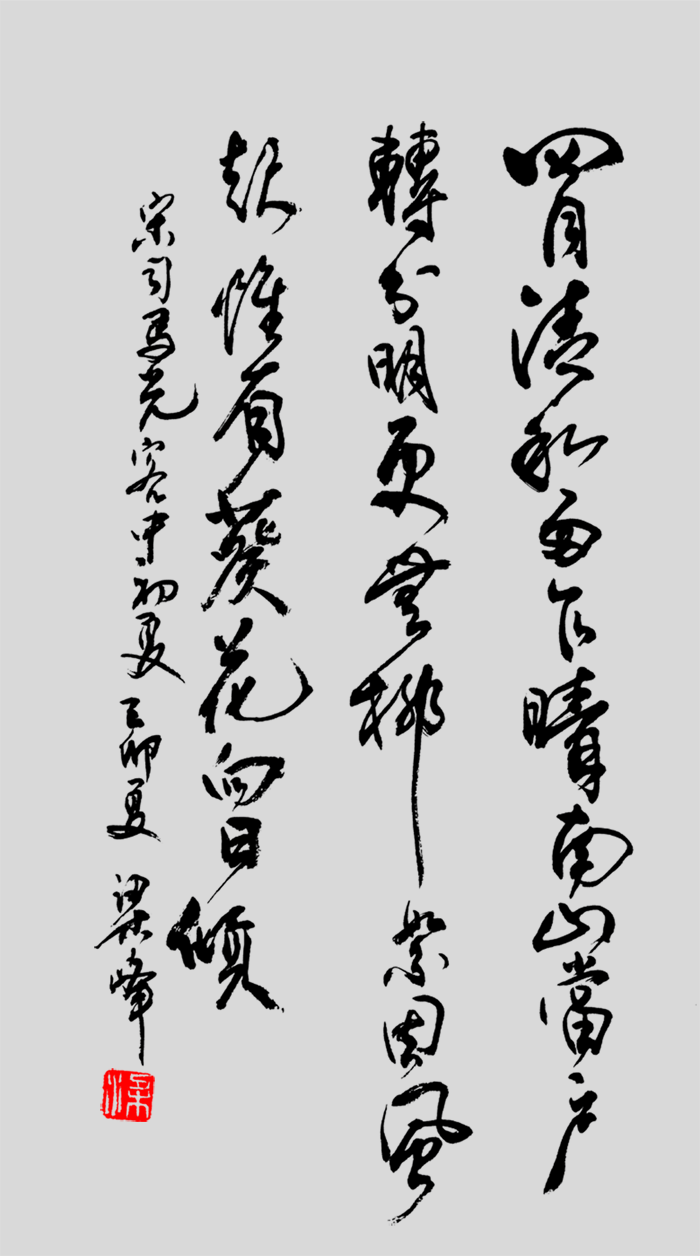 四月清和雨乍晴南山當戶
轉分明更無柳絮因風
起惟有葵花向日傾
宋司馬光客中初夏 己卯夏 梁峰
梁